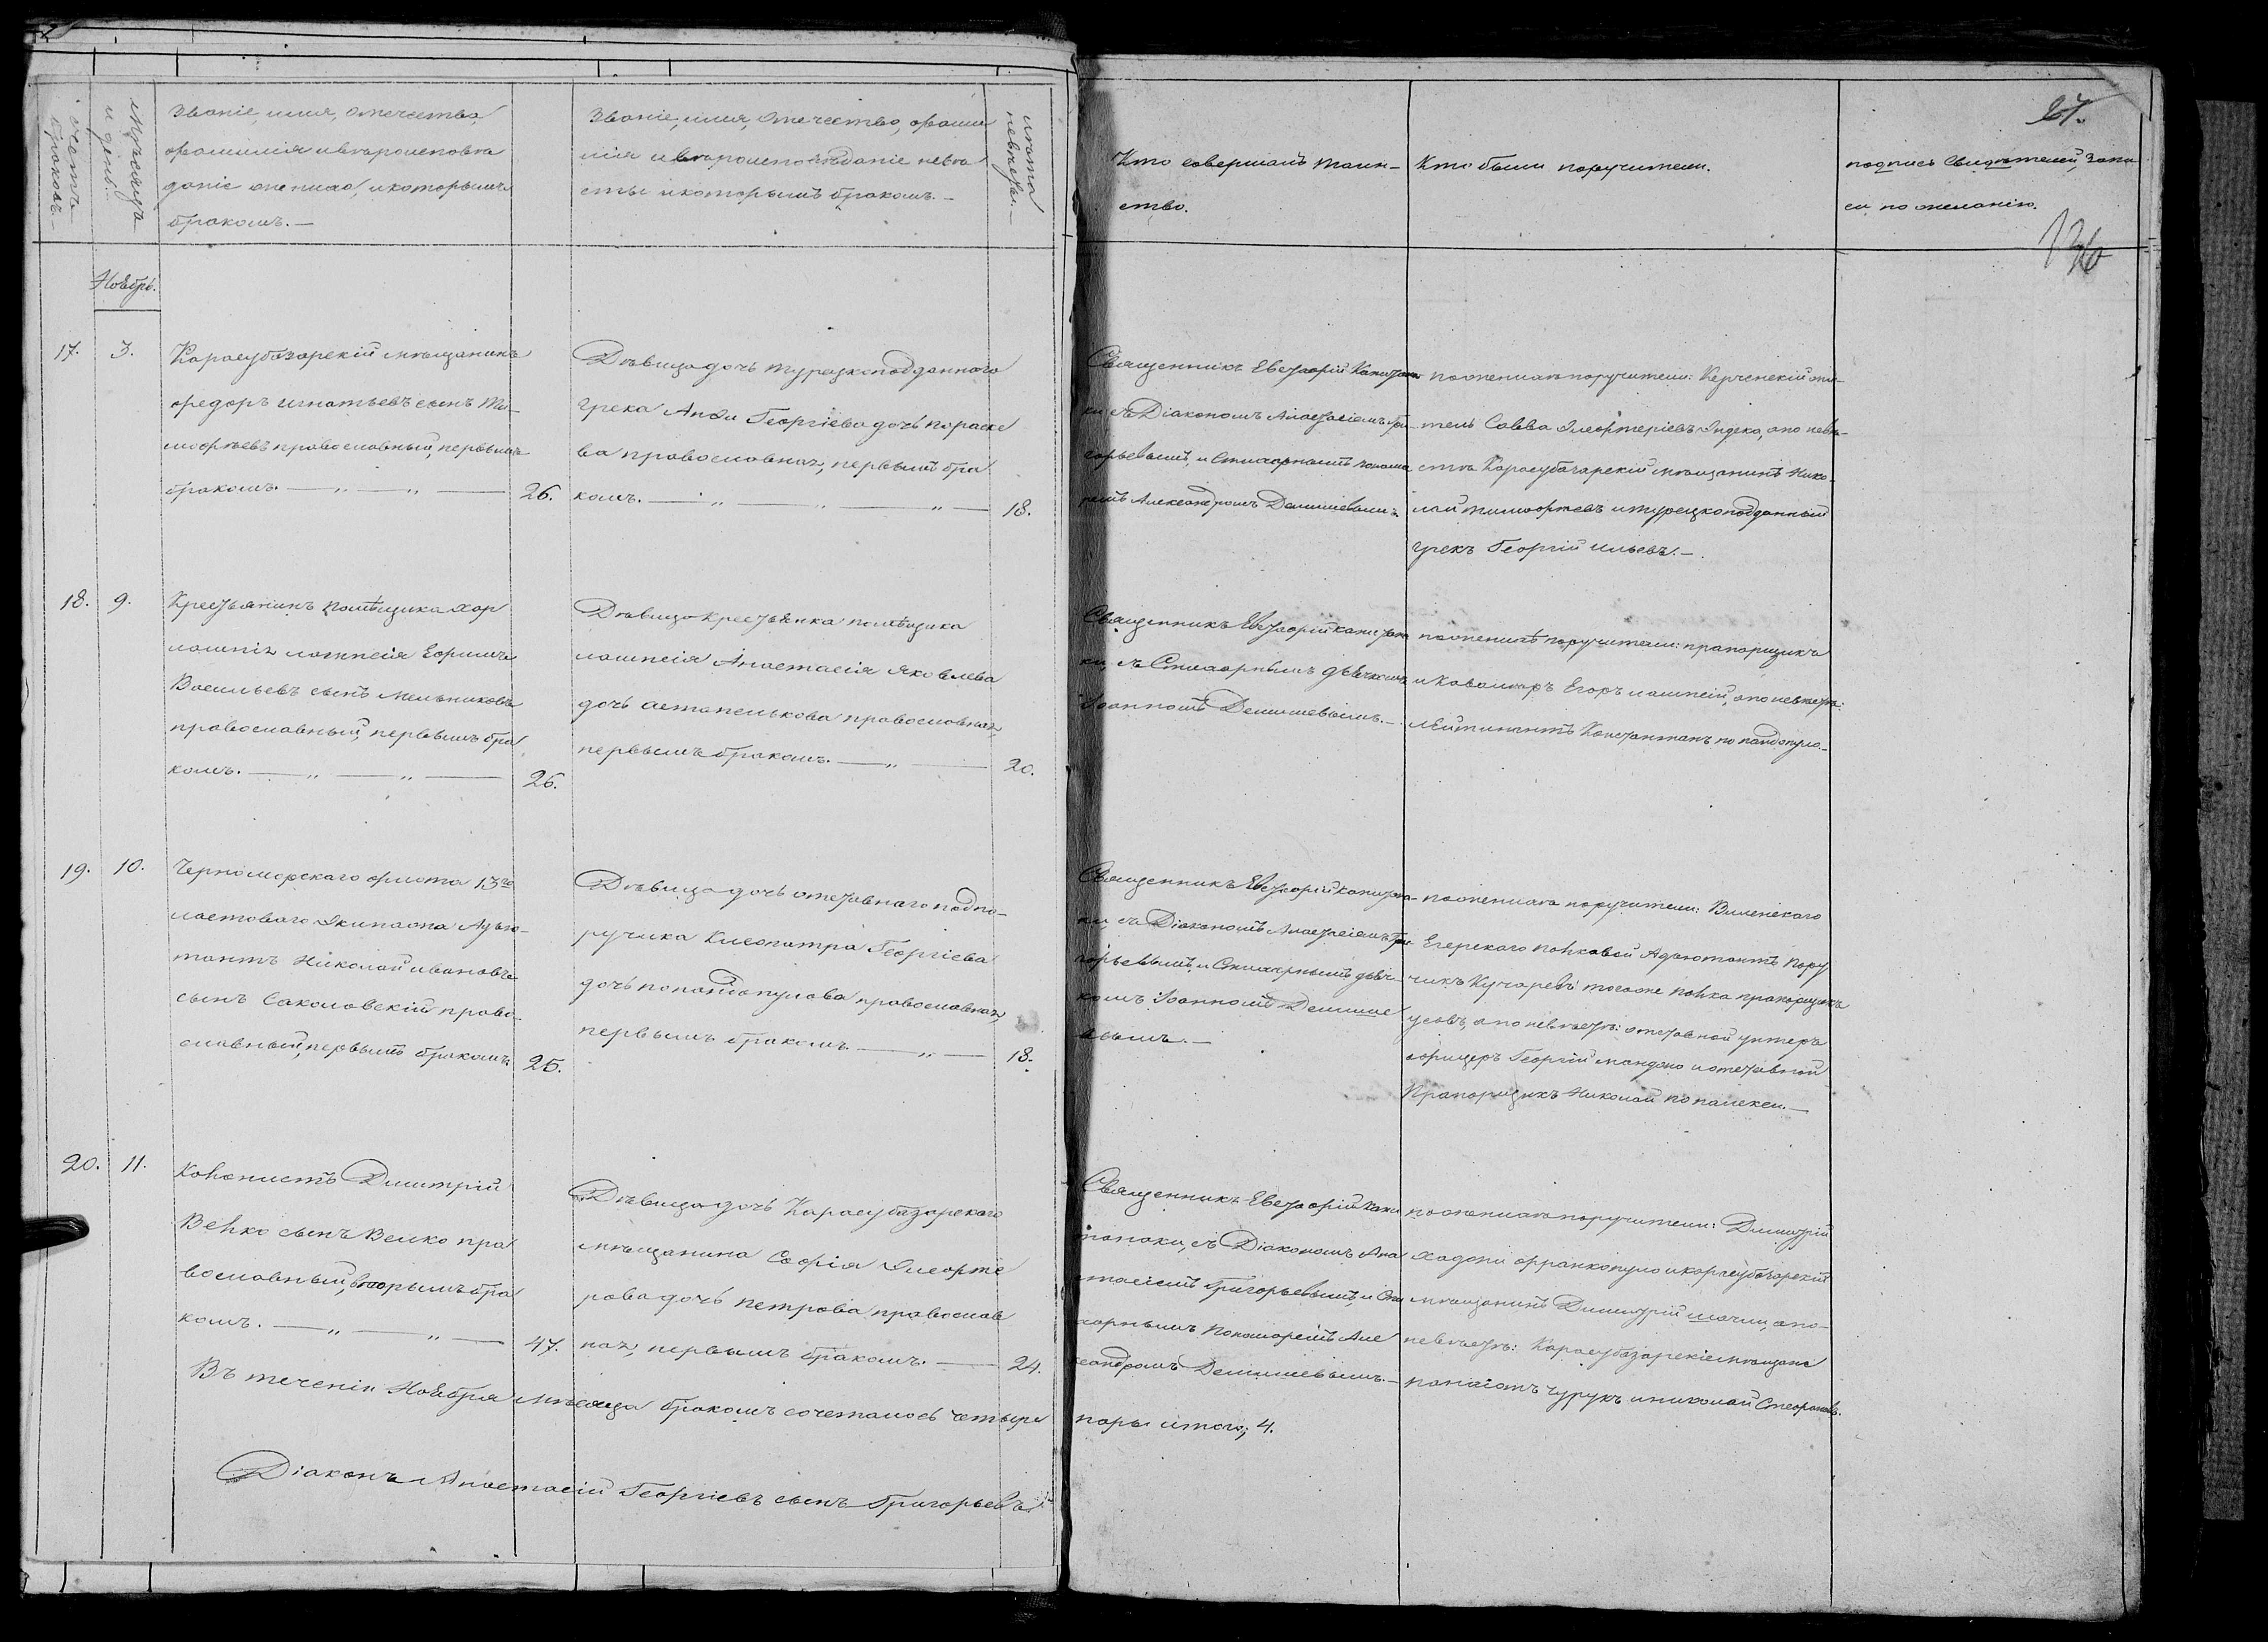 67.
136
счетъ браковъ.
Мѣсяцъ и день.
Званіе, имя, отечество,
фамилія и вѣроисповѣ
даніе жениха, и которымъ
бракомъ. —
Званіе, имя, отечество, фами
лія и вѣроисповѣданіе невѣ
сты и которымъ бракомъ. —
лѣта невѣсты. —
Кто совершалъ таин-
ство.
Кто были поручители.
подпись свидѣтелей, запи
си по желанію.
Ноябрь.
17. 3.
Карасубазарскій мѣщанинъ
Федоръ Игнатьевъ сынъ Ти-
мофѣевъ православный, первымъ
бракомъ. — „ — „ — 26.
Дѣвица дочь турецкоподданного
грека Георгіева дочь параске
ва православная, первымъ бра
комъ. — „ — „ — „ — 18.
Священникъ Евстафій
ки съ Діакономъ Анастасіемъ Гри-
горьевымъ, и Стихарнымъ понама
ремъ Александромъ Демишевымъ.
по женихѣ поручители: Керченскій жи-
тель Савва Элефтеріевъ а по невѣ-
стѣ Карасубазарскій мѣщанинъ Нико-
лай тимофѣевъ и турецкоподданный
грекъ Георгій ильевъ. —
18. 9.
Крестьянинъ помѣщика Хар
лампія лампсія Ефимъ
Васильевъ сынъ Мельниковъ
православный, первымъ бра
комъ. — „ — „ — 26.
Дѣвица Крестьянка помѣщика
лампсія Анастасія Яковлева
дочь астапенкова православная
первымъ бракомъ. — „ — 20.
Священникъ Евстафій
ки, съ Стихарнымъ дьячкомъ
Іоанномъ Демишевымъ. —
по женихѣ поручители: прапорщикъ
и Кавалеръ Егоръ лампсій, а по невѣстѣ:
лейтинантъ Константинъ попандопуло-
19. 10.
Черноморскаго флота 13го
ластоваго Экипажа Адъю-
тантъ Николай ивановъ
сынъ Саколовскій право-
славный, первымъ бракомъ. 25.
Дѣвица дочь отставнаго подпо-
ручика Клеопатра Георгіева
дочь попандопулова православная,
первымъ бракомъ. — „ — 18.
Священникъ Евстафій
ки, съ Діакономъ Анастасіемъ Гри-
горьевымъ, и Стихарнымъ дьяч-
комъ Іоанномъ Демише
вымъ. —
по женихѣ поручители: Виленскаго
Егерскаго полковой Адъютантъ Пору
чикъ Кучаревъ тогоже полка прапорщикъ
усовъ, а по невѣстѣ: отставной унтеръ
офицеръ Георгій и отставной
Прапорщикъ Николай —
20. 11.
Колонистъ Димитрій
Велко сынъ Велко пра
вославный, вторымъ бра
комъ. — „ — „ — 47.
Дѣвица дочь Карасубазарскаго
мѣщанина Софія Элефте
рова дочь петрова православ
ная, первымъ бракомъ. — 24.
Священникъ Евстафій
съ Діакономъ Ана
стасіемъ Григорьевымъ, и Сти
харнымъ Пономаремъ Але
ксандромъ Демишевымъ. —
по женихѣ поручители: Димитрій
франкопуло и карасубазарскій
мѣщанинъ Димитрій а по
невѣстѣ: Карасубазарскіе мѣщане
панаіотъ чурукъ и николай Стефановъ.
Въ теченіи Ноября Мѣсяца бракомъ сочеталось четыре
пары итого, 4.
Діаконъ Анастасій Георгіевъ сынъ Григорьевъ.